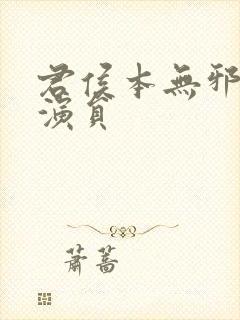 君侯本無邪
演員
蕭蔷